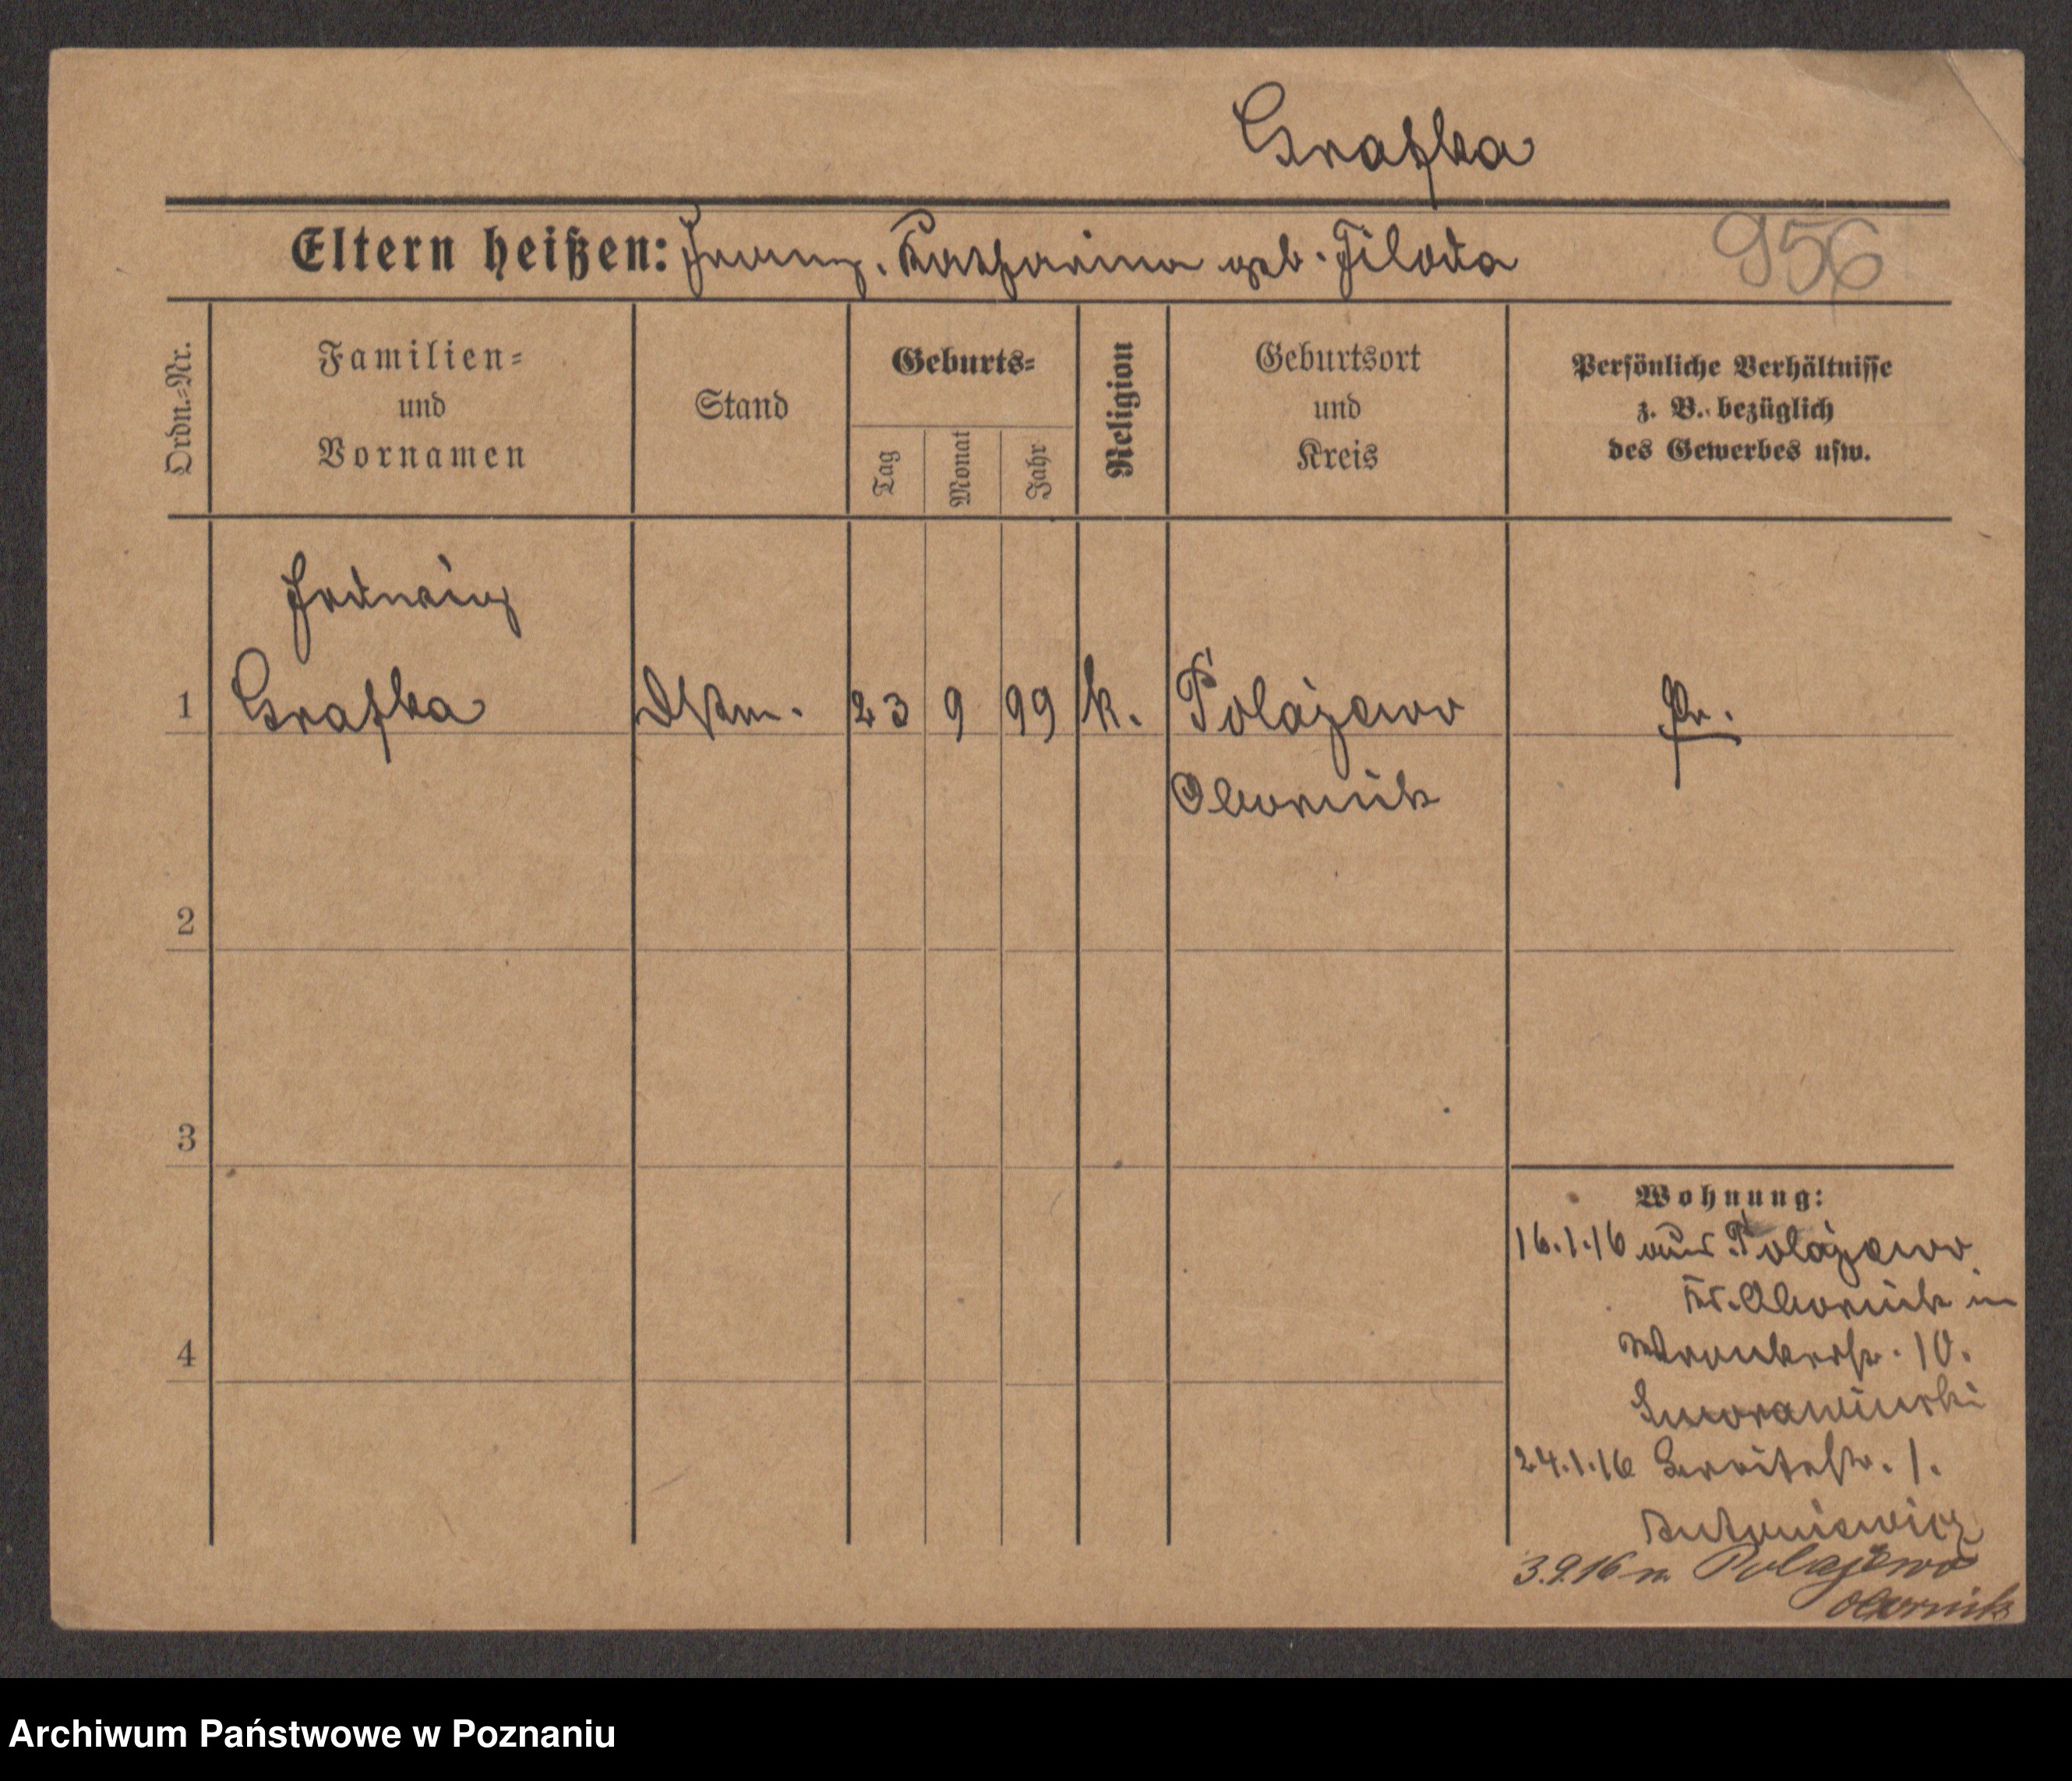 Grafka
Eltern heißen: Franz, Katharina geb. Filoda
956
Ordn.=Nr.
Familien=
und
Vornamen
Stand
Geburts=
Tag
Monat
Jahr
Religion
Geburtsort
und
Kreis
Persönliche Verhältnisse
z. B. bezüglich
des Gewerbes usw.
1 Grafka 23 9 99 k. Polajewo Pr.
Obornik
2
3
4
Wohnung:
16.1.16 aus Polajewo
Kr. Obornik in
Wronkerstr. 10.
24.1.16 1.
Antoniewicz
3.9.16 n. Polajewo
Obornik
Archiwum Państwowe w Poznaniu